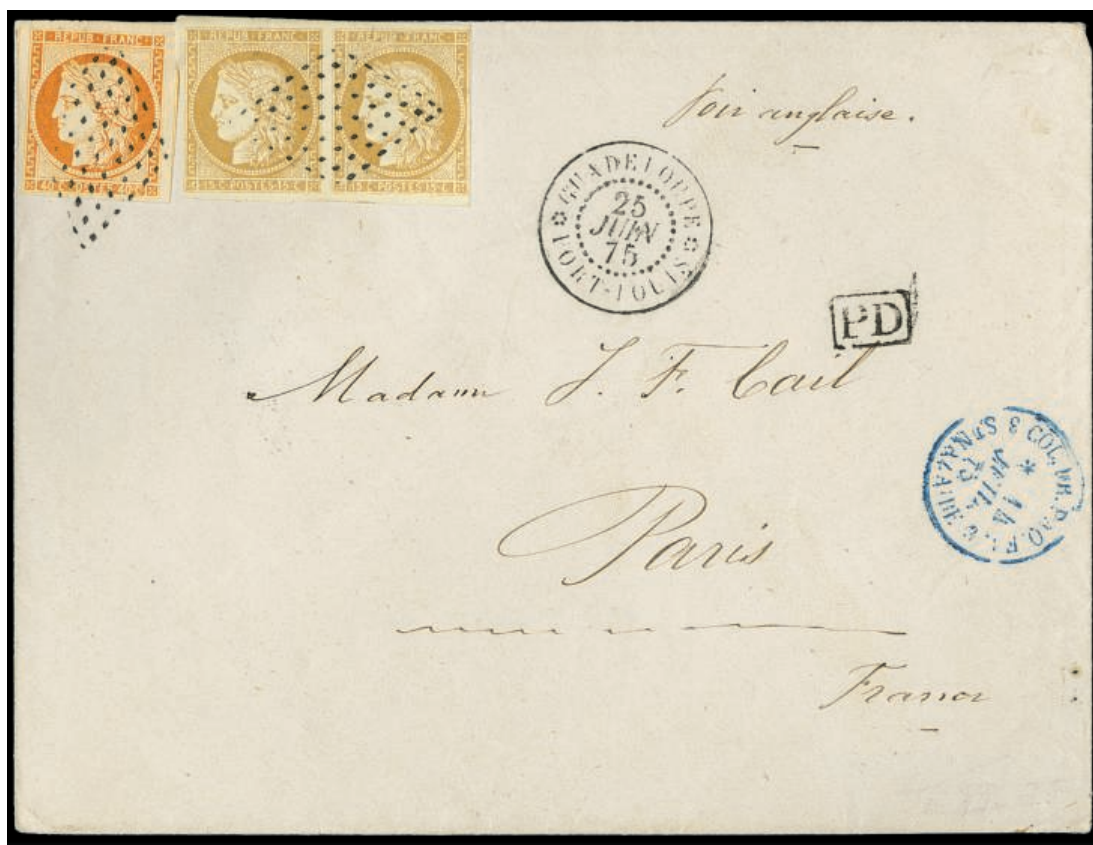 REPUB·FRANC·
40·C·POSTES·40·C·
REPUB·FRANC·
15·C·POSTES·15·C·
REPUB·FRANC·
15·C·POSTES·15·C·
Voie anglaise.
GUADELOUPE
25
JUIN
75
PORT-LOUIS
PD
Madame J. F. Cail
COL. FR. PAQ. FR.
14
JUIL.
75
3 ST NAZAIRE 3
Paris
France